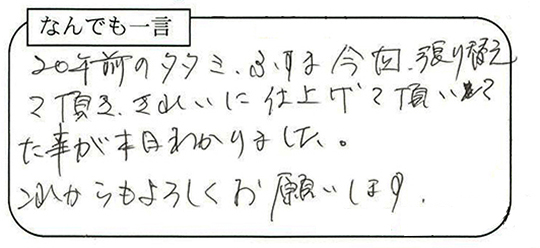 なんでも一言
20年前のタタミ、ふすま今回、張り替え
て頂き、きれいに仕上げて頂いて
た事が本日わかりました。
これからもよろしくお願いします。